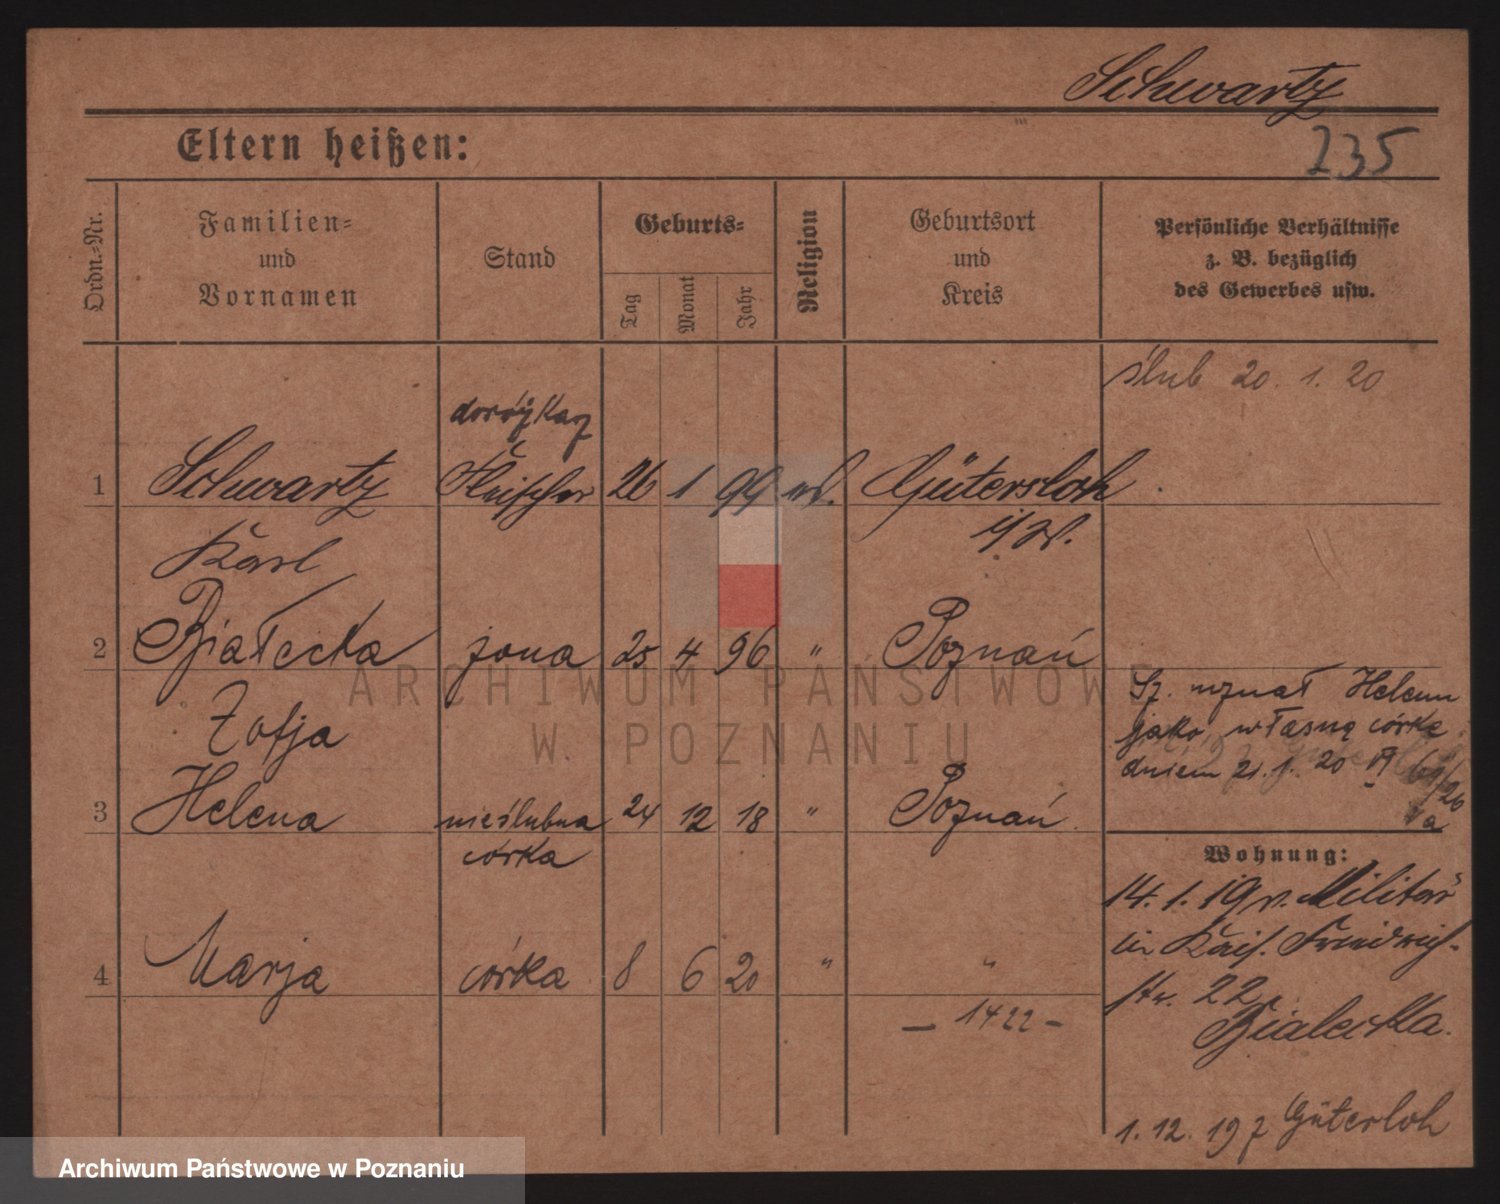 Schwartz
235
Eltern heißen:
Ordn.-Nr.
Familien-
und
Vornamen
Stand
Geburts-
Tag
Monat
Jahr
Religion
Geburtsort
und
Kreis
Persönliche Verhältnisse
z. B. bezüglich
des Gewerbes usw.
ślub 20. 1. 20
dorożkarz
1 Schwartz Fleischer 26 1 99 Gütersloh
Karl i/W.
2 Białecka żona 25 4 96 " Poznań
Zofja
Sz. uznał Helenę
jako własną córkę
dniem 21. 1. 20
3 Helena nieślubna 24 12 18 " Poznań
córka
Wohnung:
14. 1. 19 v. Militär
in Kais. Friedrich-
str. 22
Bialecka.
4 Marja córka 8 6 20 " "
- 1422 -
1. 12. 19 z Gütersloh
ARCHIWUM PAŃSTWOWE
W POZNANIU
Archiwum Państwowe w Poznaniu